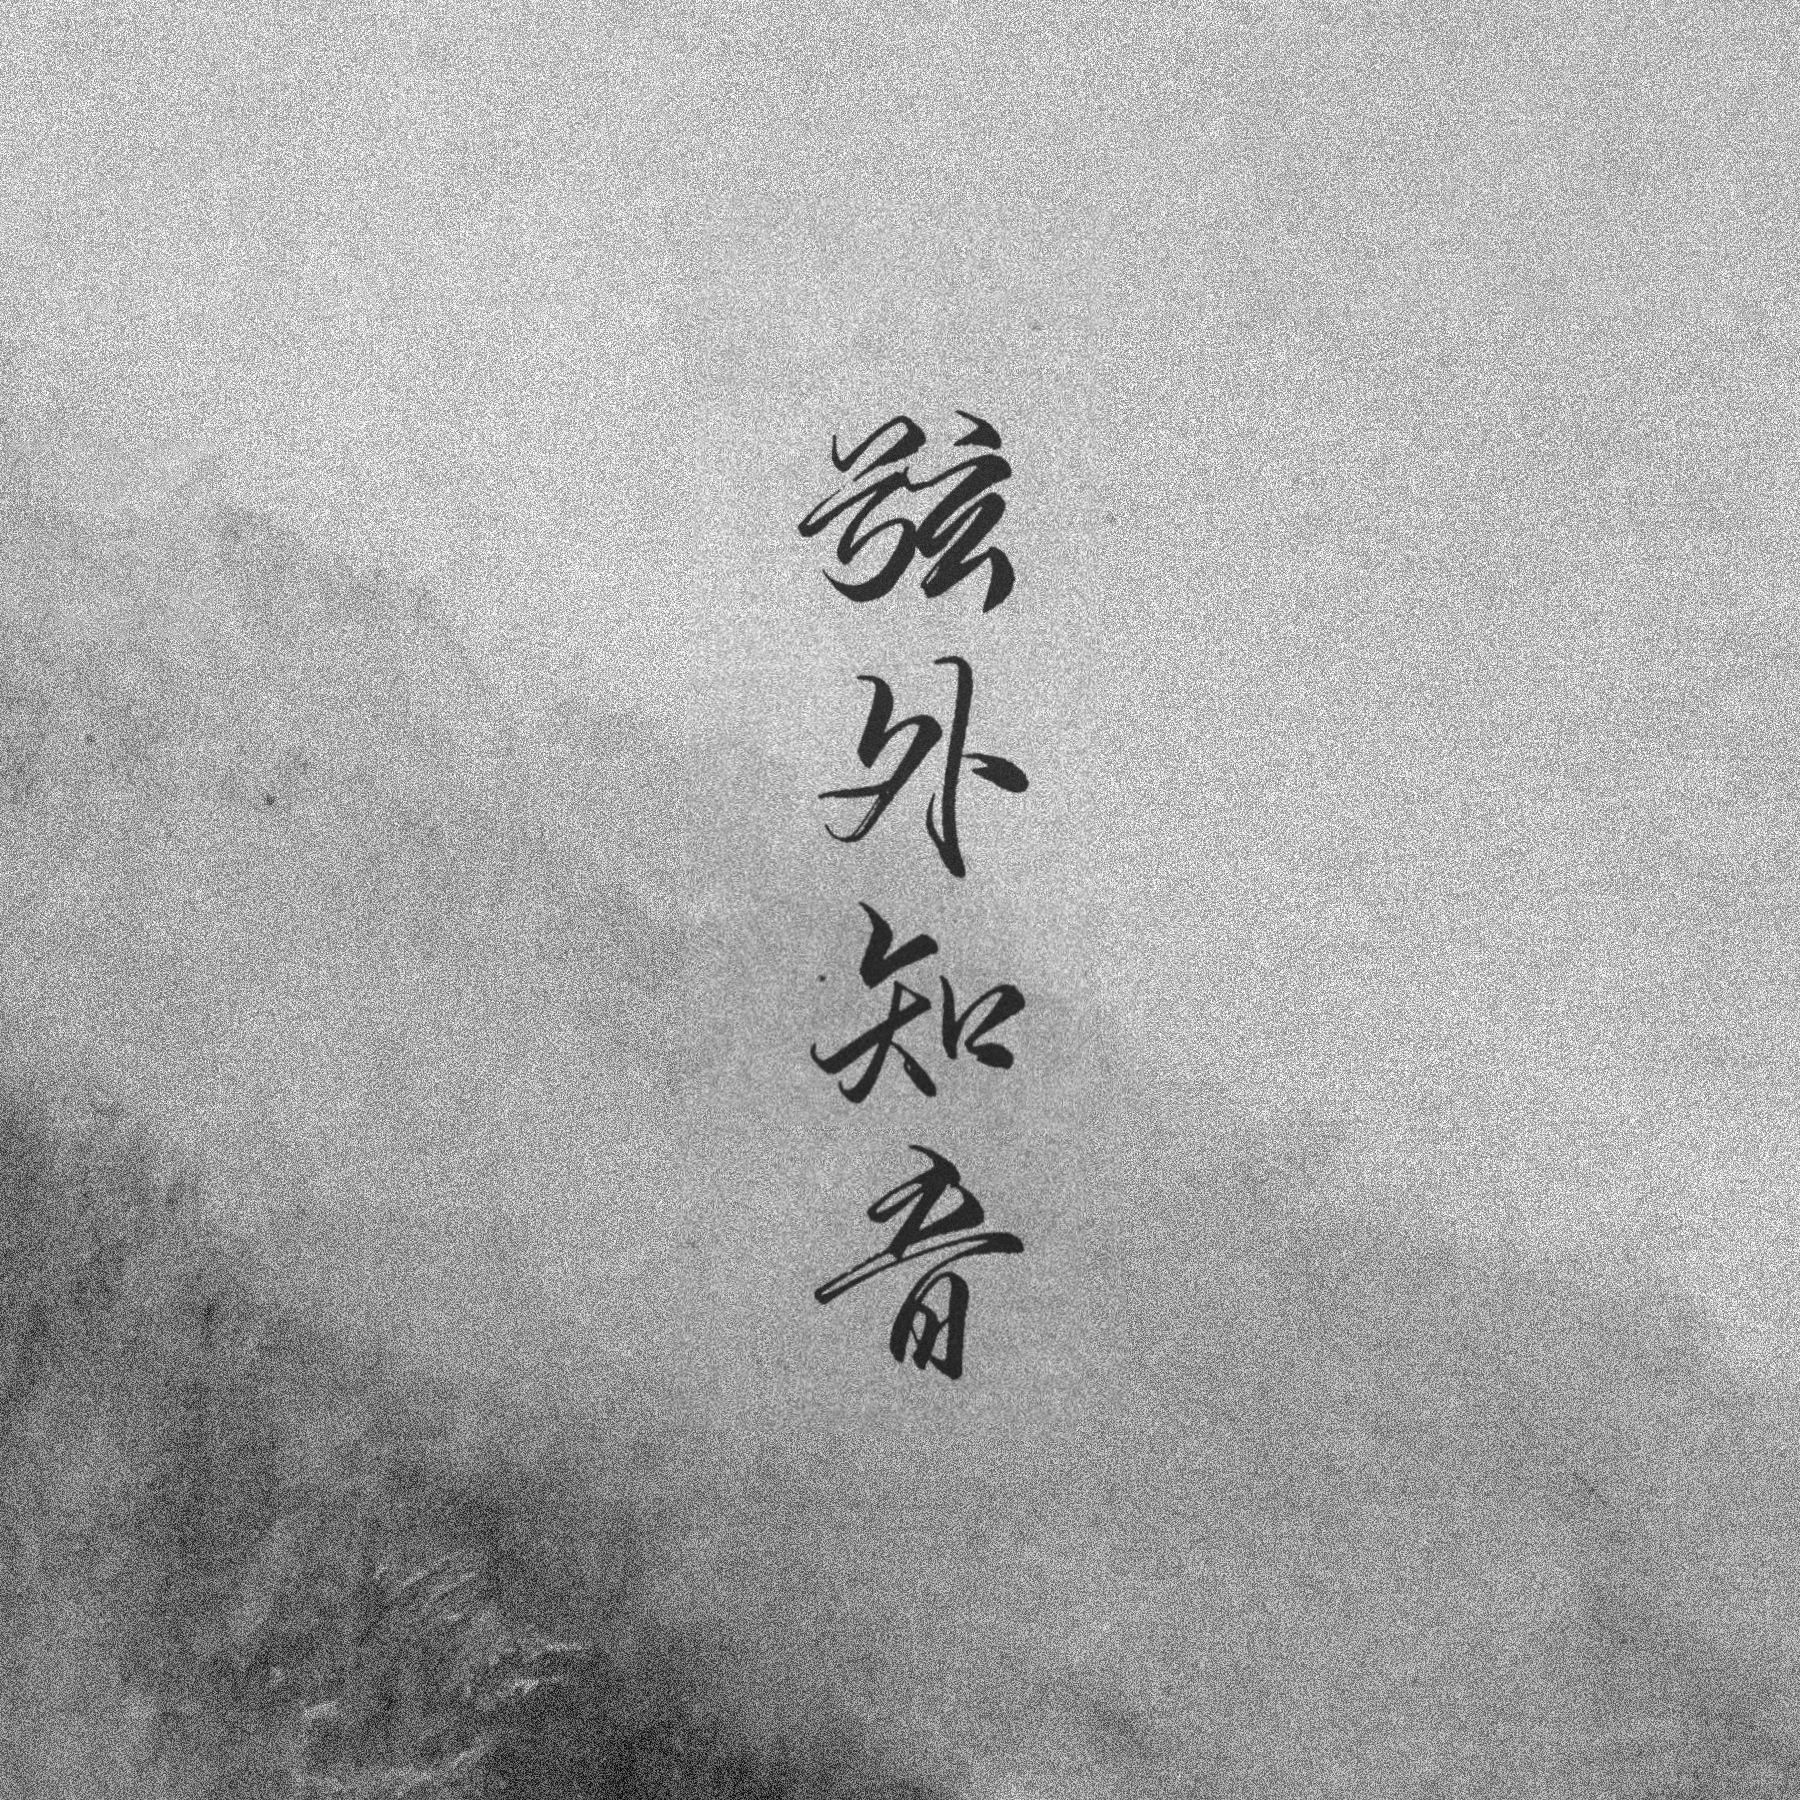 弦外知音